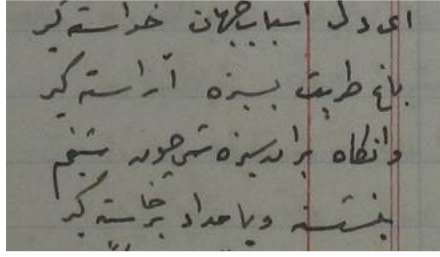 ای دل اسباب جهان خواسته گیر
باغ طربت بسبزه آراسته گیر
وانگاه بران سبزه شبی چون شبنم
بنشسته و بامداد برخاسته گیر